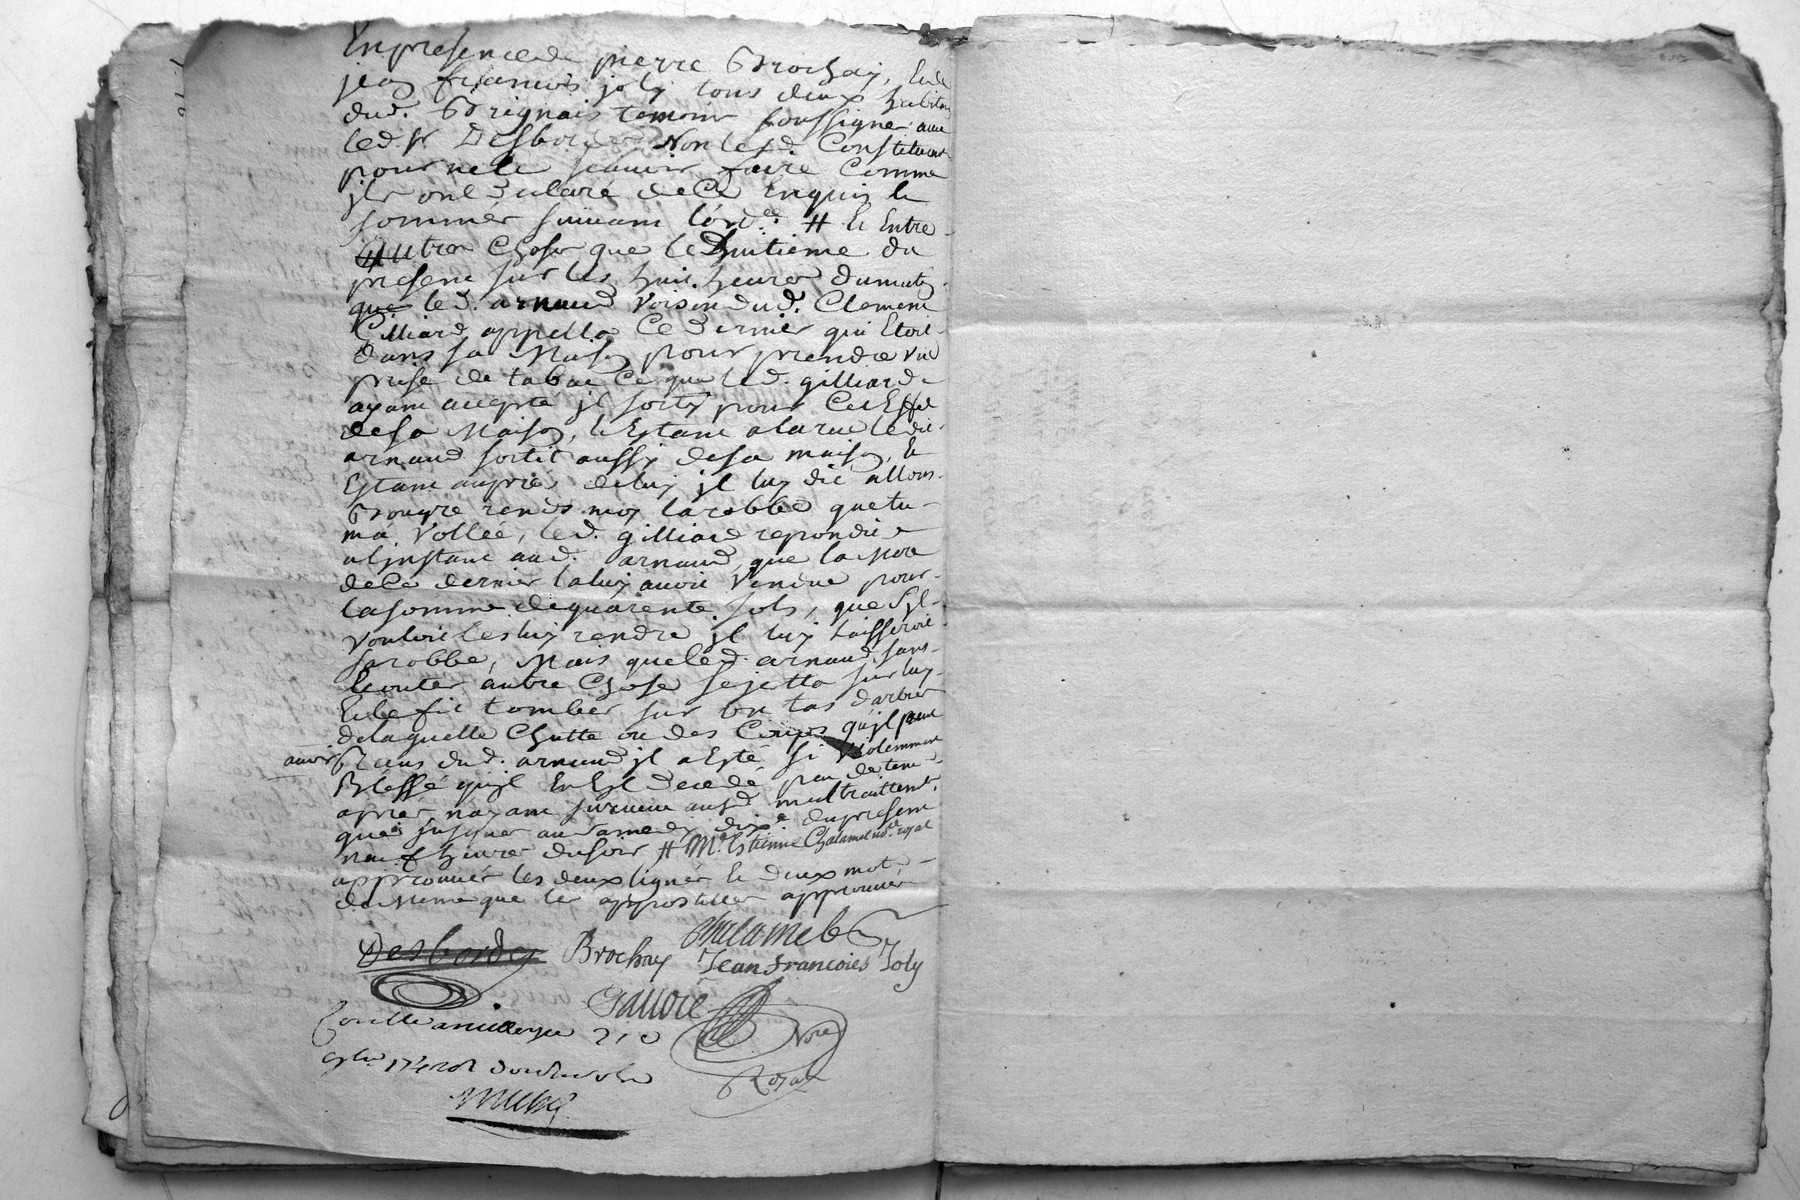 En presence de pierre Brochay, Et de
jean francois joly tous deux habitans
dud. Brignais temoins soussignes avec
led Sr Desbordes Non lesd. Constituants
pour ne le scavoir faire Comme
jls ont declaré de Ce Enquis et
sommés suivant l'ord.ce # Et Entre
autres Choses que le huitieme du
present sur les huit heures du matin
que led. arnaud voisin dud. Clement
Gilliard appella Ce dernier qui Etoit
dans sa Maison pour prendre une
prise de tabac Ce que led. gilliard
ayant accepté jl sorty pour Cet Effet
de sa Maison, Et Estant a la rue ledit
arnaud sortit aussy de sa maison, Et
Estant aupres de luy jl luy dit allons
Bougre rends moy la robbe que tu
m'a Vollée, led. gilliard repondit
a l'jnstant aud. arnaud, que la Mere
de Ce dernier la luy avoit Vendue pour
la somme de quarente sols, que s'jl
vouloit les luy rendre jl luy laisseroit
sa robbe, Mais que led. arnaud sans
Ecouter autre Chose se jetta sur luy
Et le fit tomber sur un tas d'arbres
de laquelle Chutte ou des Coups qu'jl peut
avoir
Reçus dud. arnaud jl a Esté si violemment
Blessé qu'jl En Est decedé peu de tems
apres, n'ayant survecu aud. maltraittent.
que jusques au samedy dixe. du present
neuf heures du soir # Me. Estienne Chalamel no.re royal
approuvés les deux lignes Et deux mots
de Meme que les appostilles approuvés
Desbordes Brochay Chalamel
Jean francoies Joly
Gallore
Nore
Royal
Conttle a